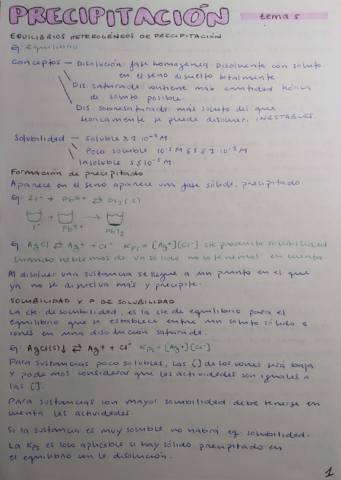 PRECIPITACIÓN
tema 5
EQUILIBRIOS HETEROGÉNEOS DE PRECIPITACIÓN
Eg: equilibrio
Conceptos — Disolución: fase homogénea. Disolvente con soluto
en el seno disuelto totalmente.
Dis. saturada: contiene más cantidad
de soluto posible.
Dis. sobresaturada: más soluto del que
teóricamente se puede disolver. INESTABLES.
Solubilidad — Soluble
Poco soluble
Insoluble
Formación de precipitado
Aparece en el seno aparece una fase sólida, precipitado.
Eg: 2I⁻ + Pb²⁺ ⇄ PbI₂(s)
I⁻ + Pb²⁺ → PbI₂
Eg: AgCl ⇄ Ag⁺ + Cl⁻ Kps = [Ag⁺][Cl⁻] cte producto solubilidad
cuando hablemos de un sólido no lo tenemos en cuenta.
Al disolver una sustancia se llega a un punto en el que
ya no se disuelva más y precipite.
SOLUBILIDAD Y P. DE SOLUBILIDAD
La cte de solubilidad, es la cte de equilibrio para el
equilibrio que se establece entre un soluto sólido e
iones en una disolución saturada.
Eg: AgCl(s)↓ ⇄ Ag⁺ + Cl⁻ Kps = [Ag⁺][Cl⁻]
Para sustancias poco solubles, las [] de los iones será baja
y podemos considerar que las actividades son iguales a
las [].
Para sustancias con mayor solubilidad debe tenerse en
cuenta las actividades.
Si la sustancia es muy soluble no habrá eq. solubilidad.
La Kps es solo aplicable si hay sólido precipitado en
el equilibrio con la disolución.
1